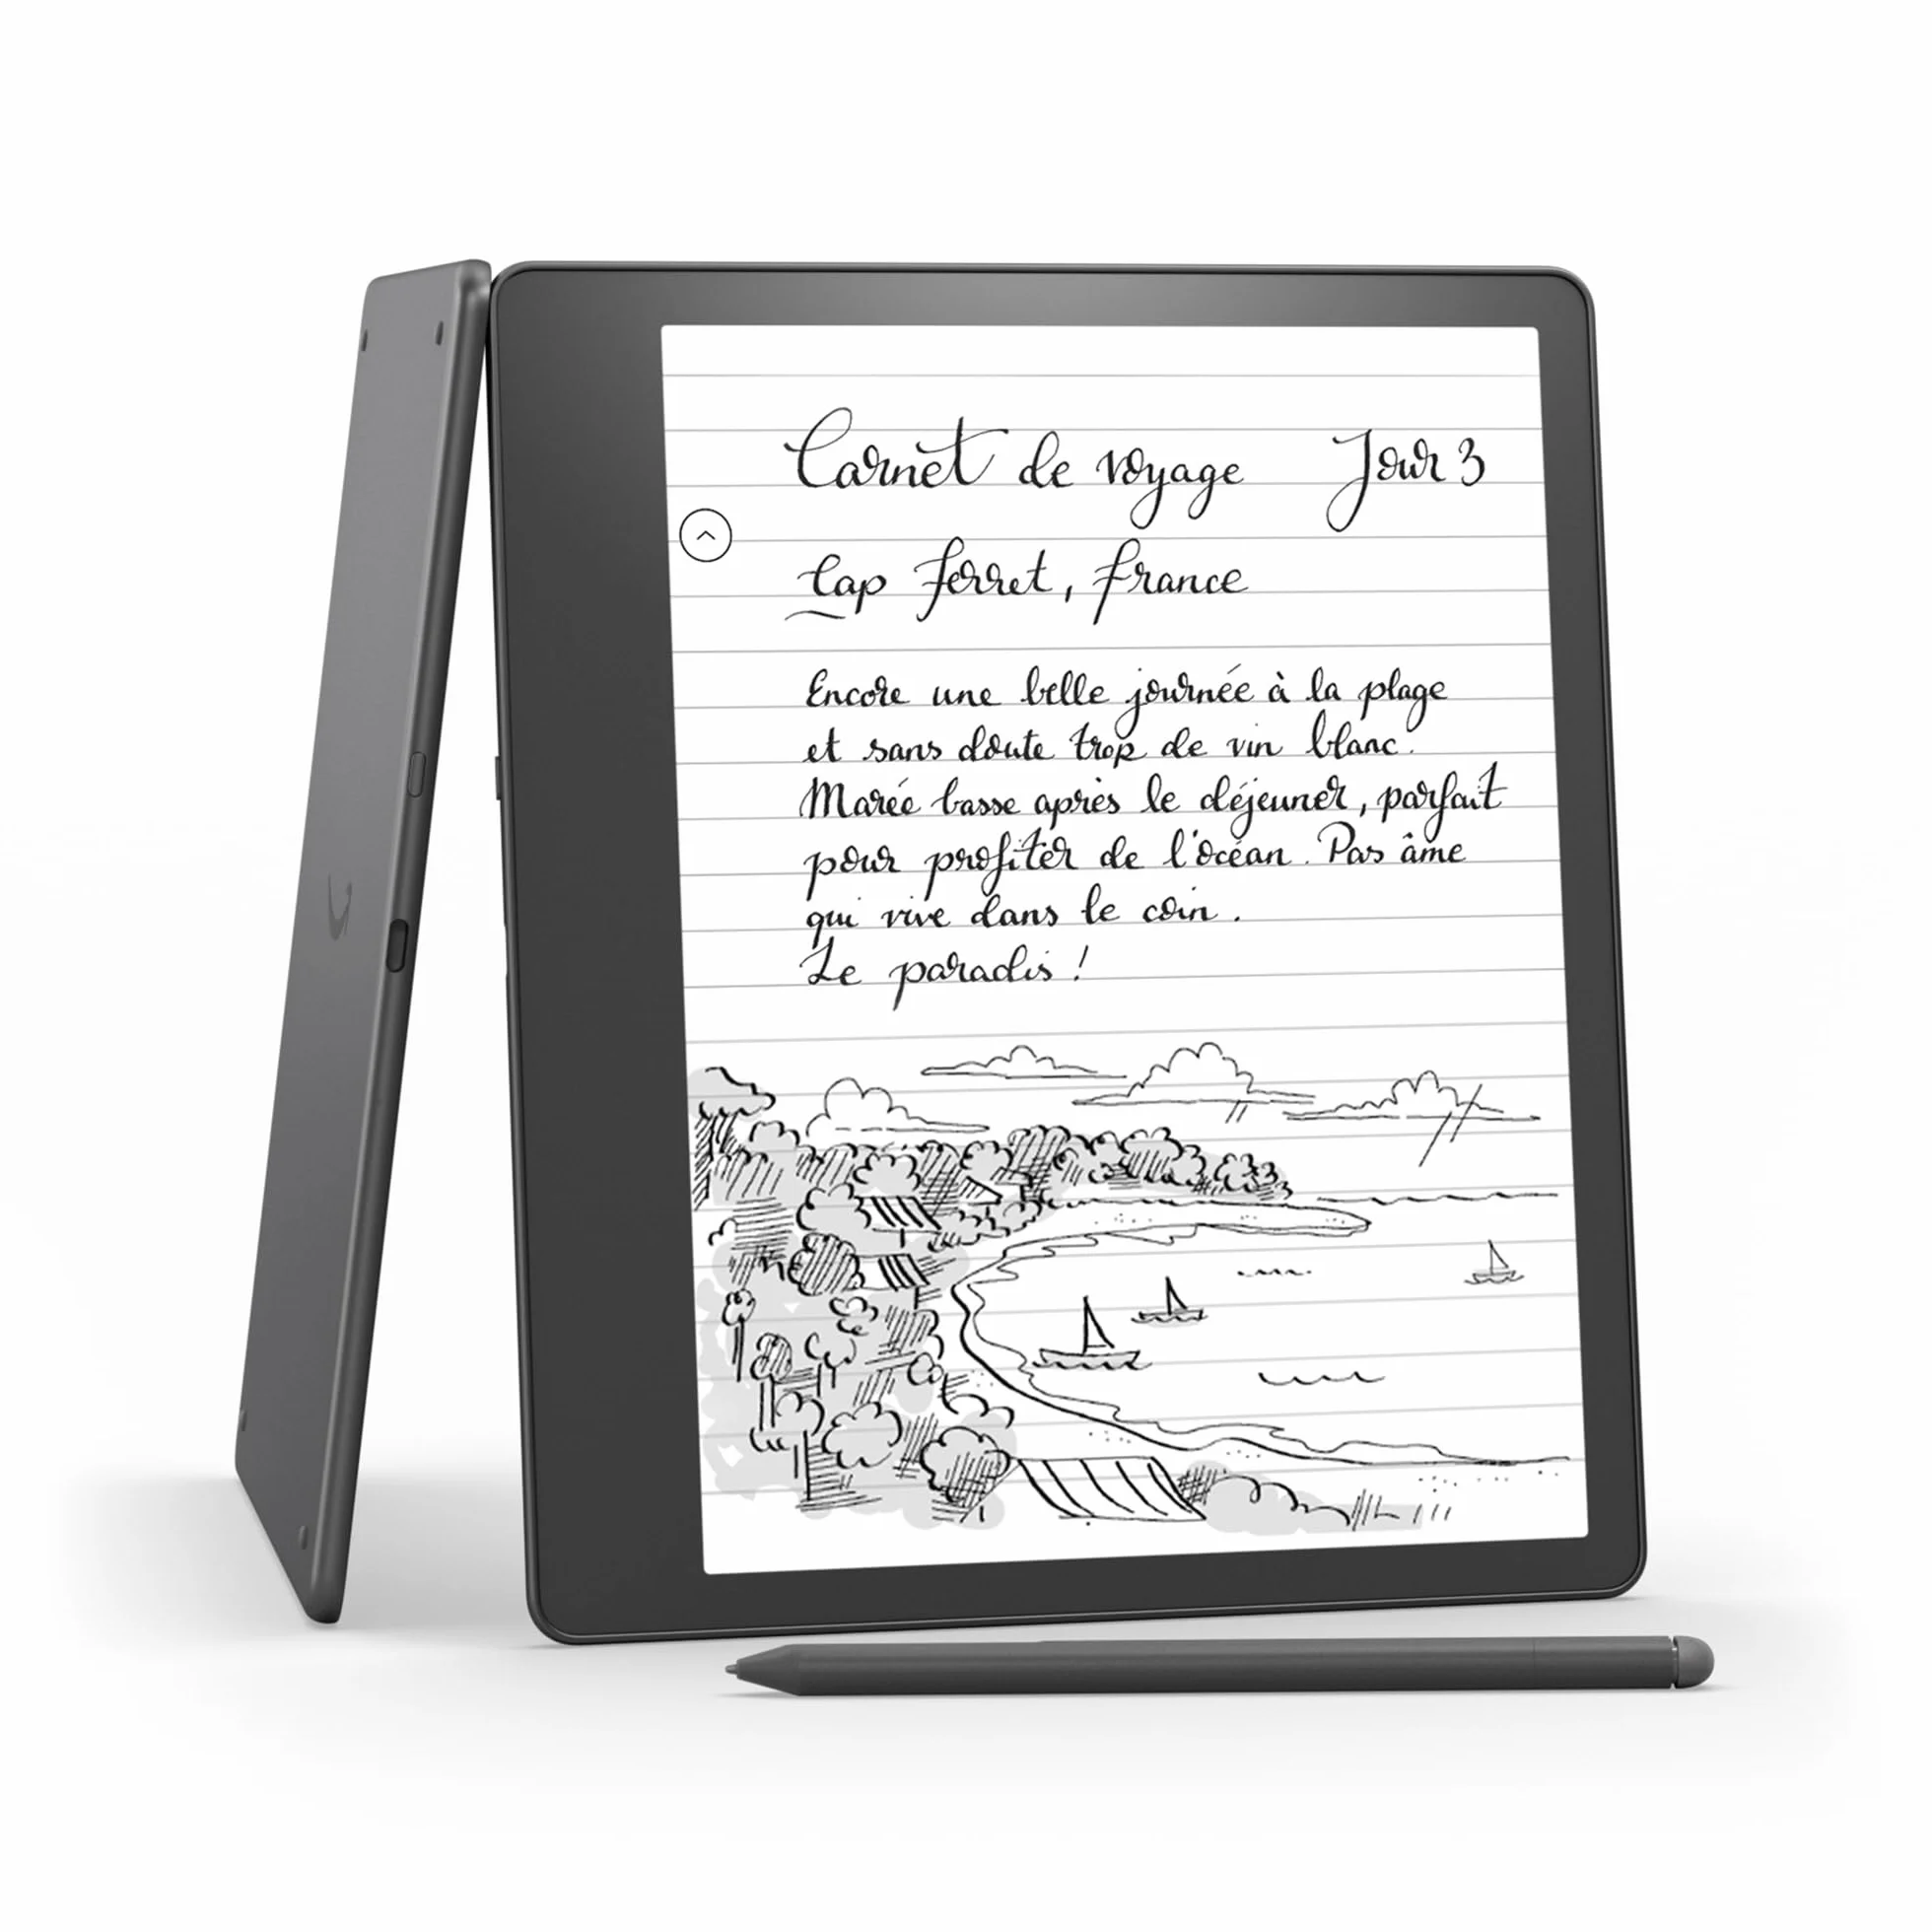 Carnet de voyage Jour 3
Cap Ferret, France
Encore une belle journée à la plage
et sans doute trop de vin blanc.
Marée basse après le déjeuner, parfait
pour profiter de l'océan. Pas âme
qui vive dans le coin.
Le paradis !